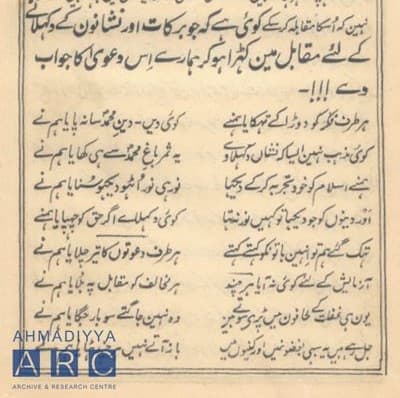 نہین کہ اُسکا مقابلہ کر سکے کوئی ہے کہ جو برکات اور نشانون کے دکھلانے
کے لئے مقابل مین کھڑا ہو کر ہمارے اِس دعویٰ کا جواب
دے !!!۔
ہر طرف فکر کو دوڑا کے تھکایا ہمنے کوئی دیں۔ دین محمدؐ سا نہ پایا ہم نے
کوئی مذہب نہین ایسا کہ نشان دکھلاوے یہ ثمر باغ محمدؐ سے ہی کھایا ہم نے
ہمنے اسلام کو خود تجربہ کر کے دیکھا نور ہی نور اُٹھو دیکھو سُنایا ہم نے
اور دینون کو جو دیکھا تو کہین نور نتھا کوئی دکھلاے اگر حق کو چھپایا ہمنے
تھک گئے ہم تو انہین باتونکو کہتے کہتے ہر طرف دعوتون کا تیر چلایا ہم نے
آزمایش کے لئے کوئی نہ آیا ہر چند ہر مخالف کو مقابل پہ بلایا ہم نے
یون ہی غفلت کے لحافون مین پڑے سوتے ہین وہ نہین جاگتے سو بار جگایا ہم نے
جل رہے ہین یہ سبھی بغضونمیں اور کینون مین باز آتے نہین ہم نے
AHMADIYYA
ARC
ARCHIVE & RESEARCH CENTRE